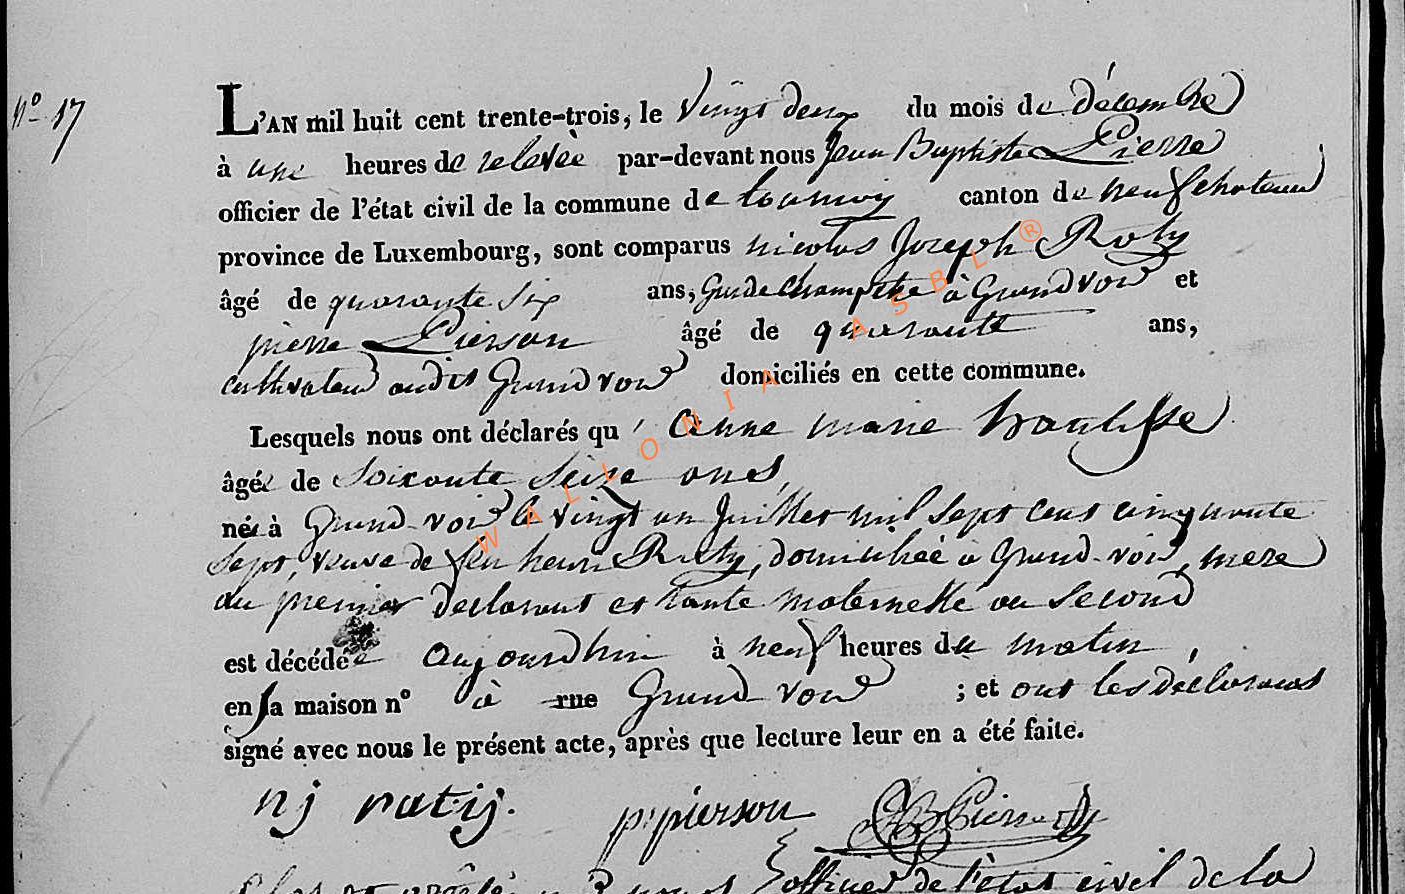 N° 17
L'AN mil huit cent trente-trois, le vingt deux du mois de décembre
à une heures de relevée par-devant nous Jean Baptiste Pierre
officier de l'état civil de la commune de tournay canton de neufchateau
province de Luxembourg, sont comparus nicolas Joseph Roty
âgé de quarante six ans, Garde Champetre à Grandvoir et
pierre Pierson âgé de quarante ans,
cultivateur audit Grandvoir domiciliés en cette commune.
Lesquels nous ont déclarés qu' anne marie
âgée de soixante seize ans,
née à Grand-voir le vingt un Juillet mil sept cent cinquante
sept, veuve de feu henri Roty, domiciliée à Grand-voir, mere
du premier declarant et tante maternelle au second
est décédée aujourdhui à neuf heures du matin,
en sa maison n° à rue Grand voir ; et ont les déclarants
signé avec nous le présent acte, après que lecture leur en a été faite.
nj ratij. p: pierson JB Pierre
officier de l'état civil de la
WALLONIA ASBL ®